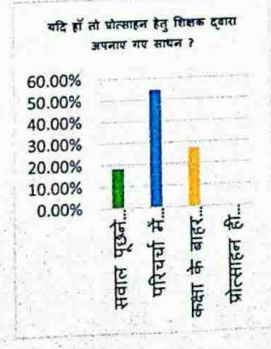 यदि हाँ तो प्रोत्साहन हेतु शिक्षक द्वारा
अपनाए गए साधन ?
60.00%
50.00%
40.00%
30.00%
20.00%
10.00%
0.00%
सवाल पूछने...
परिचर्चा में...
कक्षा के बाहर...
प्रोत्साहन ही...